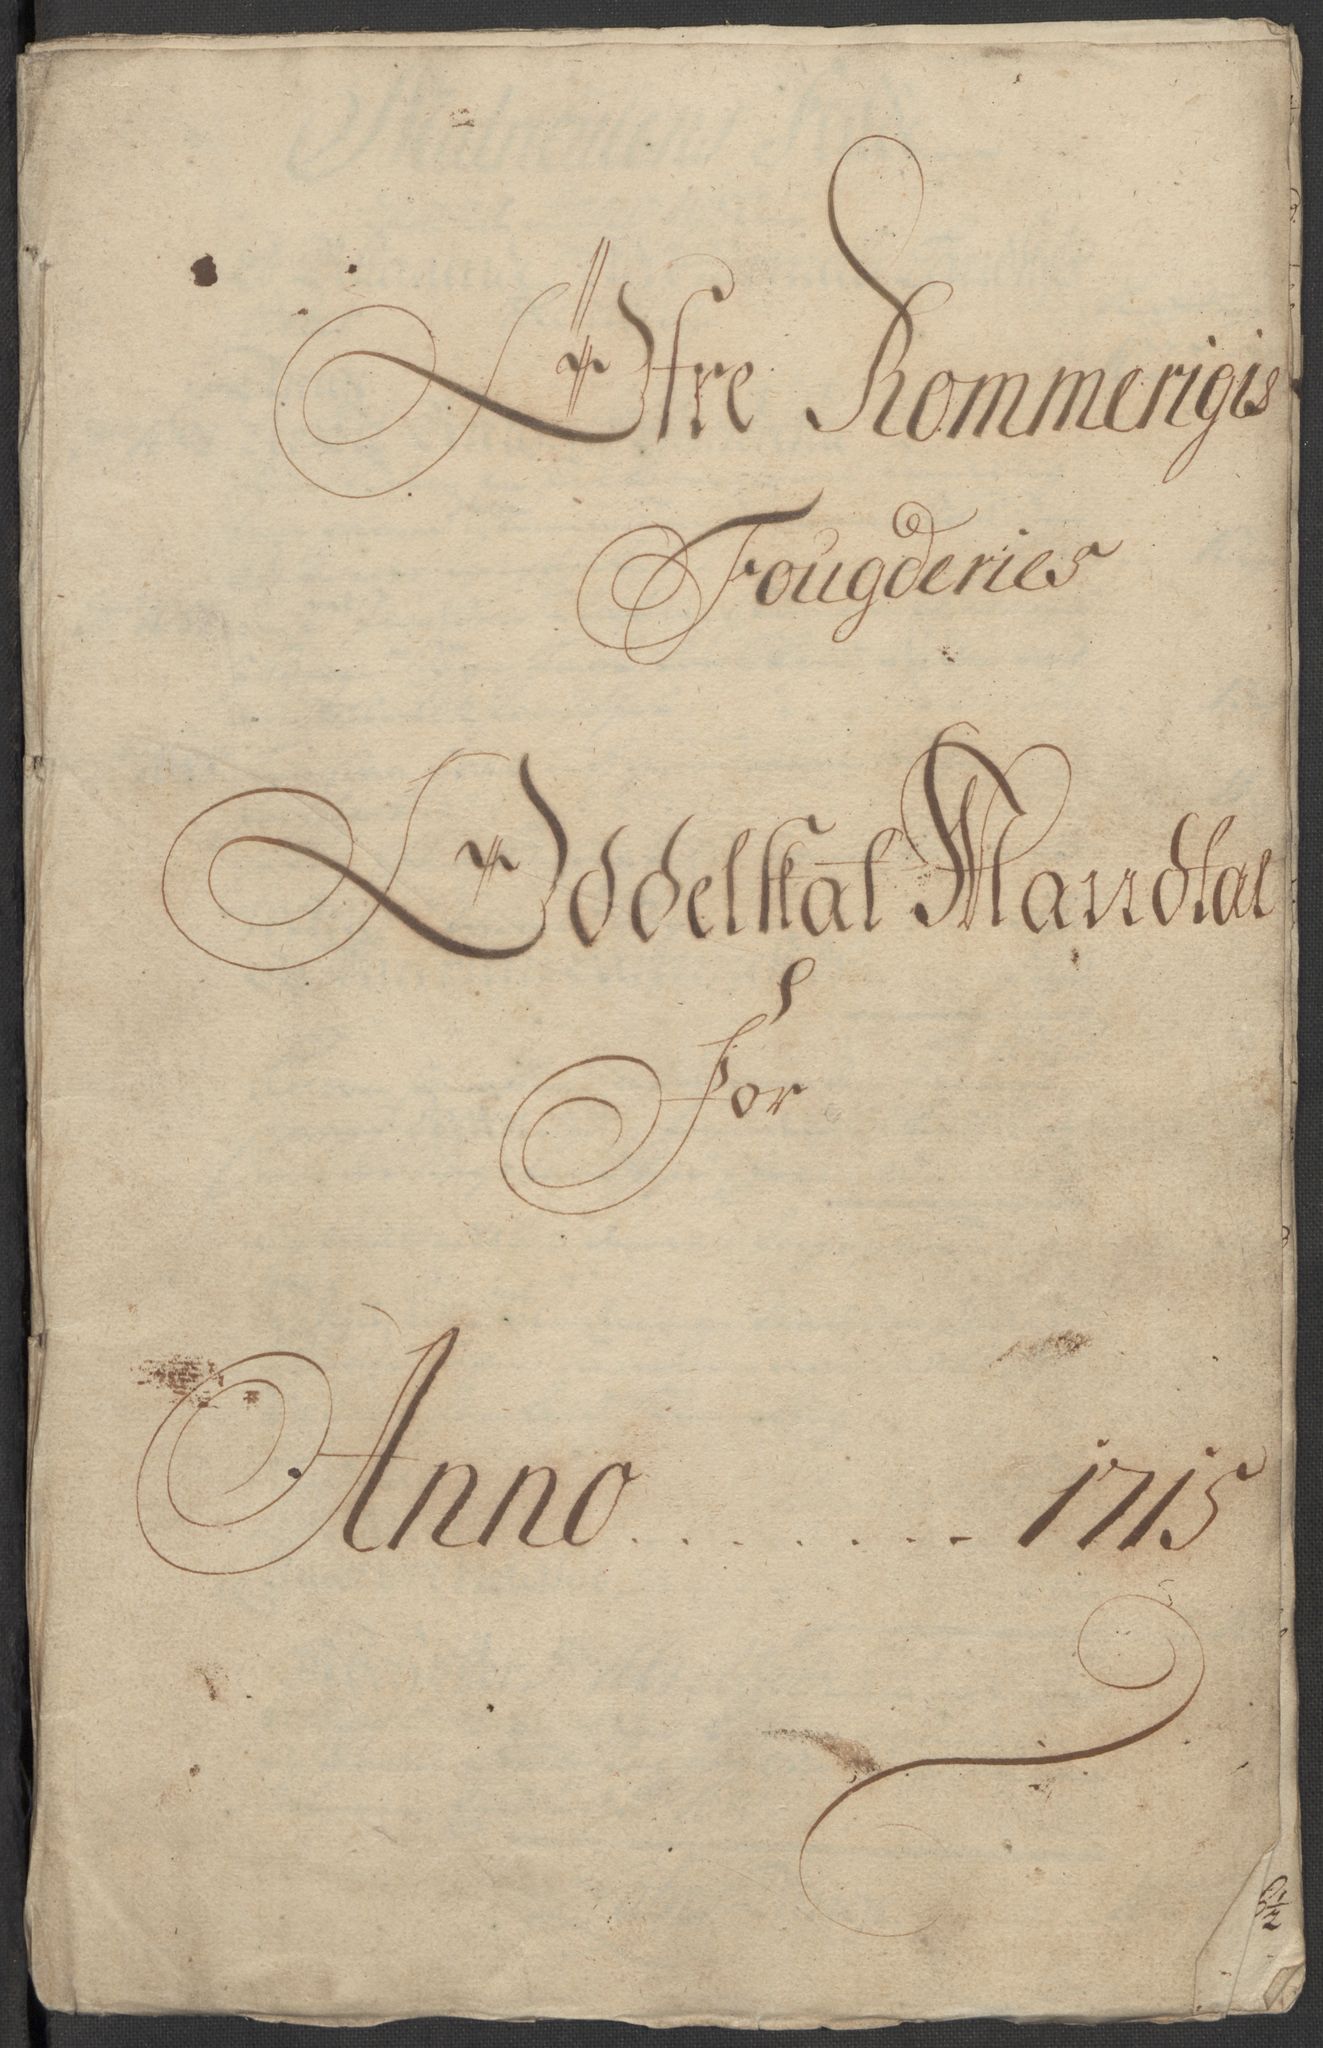 Øfre Rommerigis
Fougderies
Oddelskat Mandtal
for
Anno ........ 1715